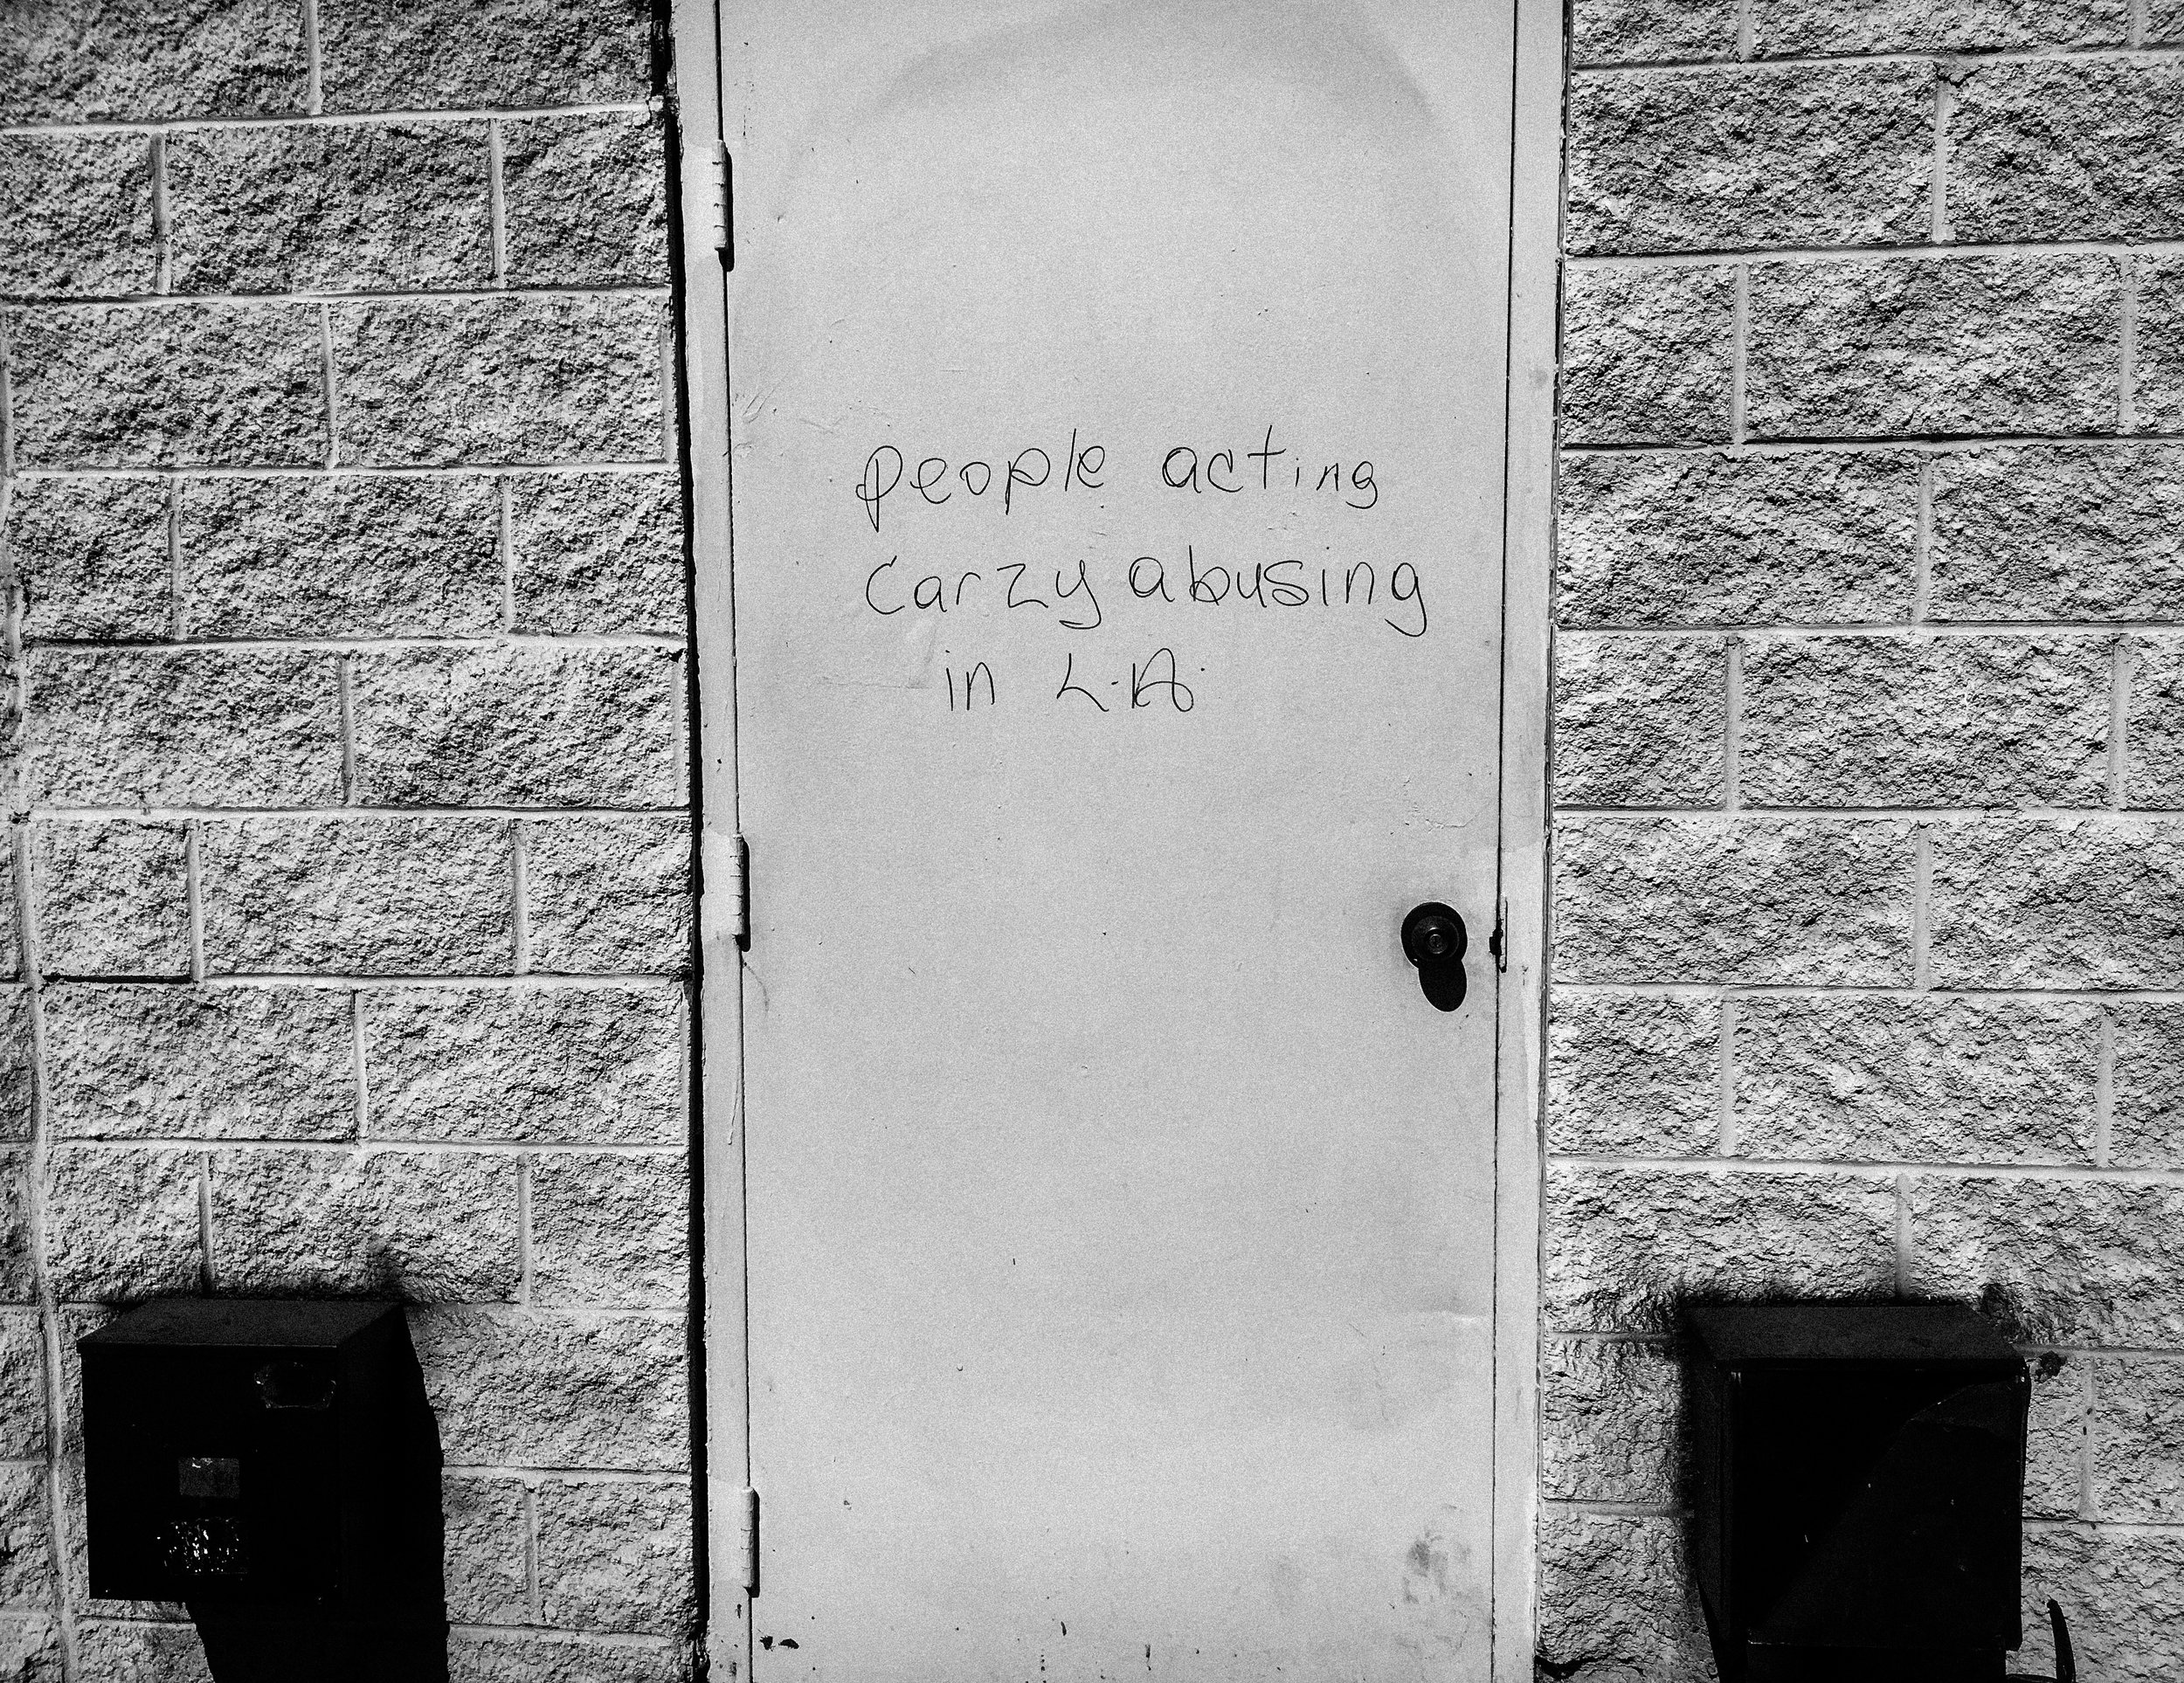 people acting
carzy abusing
in L.A.